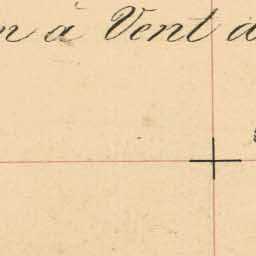 n à Vent d